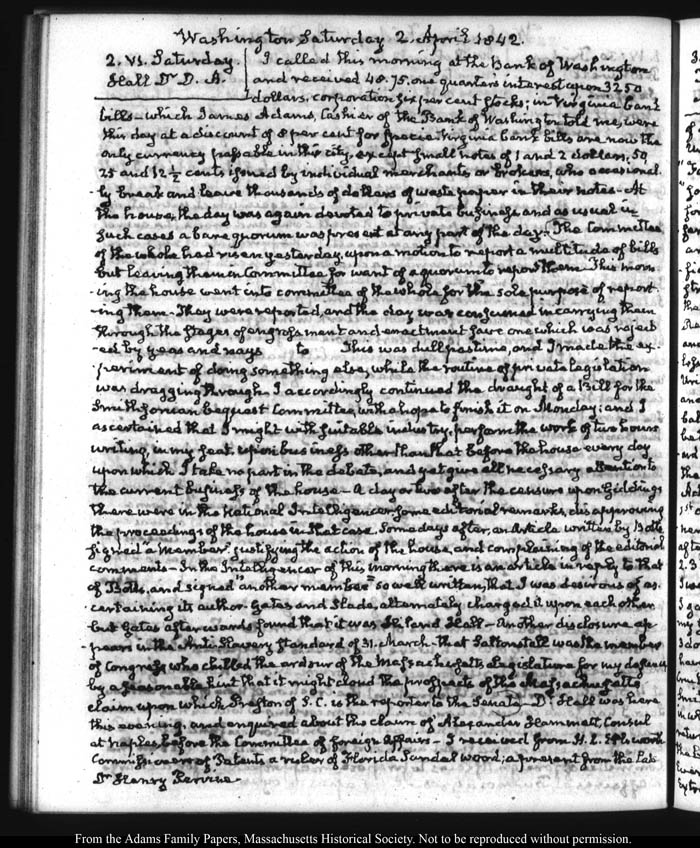 Washington, Saturday 2. April 1842.
2. VI. Saturday.
Hall Dr D. A.
I called this morning at the Bank of Washington
and received 48.75. one quarter's interest upon 3250
dollars, corporation six per cent stocks; in Virginia bank
bills—which James Adams, Cashier of the Bank of Washington told me, were
this day at a discount of 8 per cent for specie. Virginia bank bills are now the
only currency passable in this city, except small notes of 1 and 2 dollars, 50
25 and 12 ½ cents issued by individual merchants or brokers, who occasional
-ly break and leave thousands of dollars of waste paper in their notes—At
the house, the day was again devoted to private business and as usual in
such cases a bare quorum was present at any part of the day. The Committee
of the whole had risen yesterday, upon a motion to report a multitude of bills
but leaving them in Committee for want of a quorum to report them. This morn
-ing the house went into committee of the whole for the sole purpose of report
-ing them—They were reported, and the day was consumed in carrying them
through the stages of engrossment and enactment save one which was reject
-ed by yeas and nays to This was dull pastime, and I made the ex-
-periment of doing something else, while the routine of private legislation
was dragging through. I accordingly continued the draught of a Bill for the
Smithsonian bequest Committee, with a hope to finish it on Monday; and I
ascertained that I might with suitable industry, perform the work of two hours
writing, in my seat, upon business other than that before the house every day
upon which I take no part in the debate, and yet give all necessary attention to
the current business of the house—A day or two after the censure upon Giddings
there were in the National Intelligencer some editorial remarks, disapproving
the proceedings of the house in that case. Some days after, an Article written by Botts
signed "a Member" justifying the action of the house, and complaining of the editorial
comments—In the Intelligencer of this morning there is an article in reply to that
of Botts, and signed "another member" so well written, that I was desirous of as-
-certaining its author. Gates and Slade, alternately charged it upon each other
but Gates afterwards found that it was Hiland Hall—Another disclosure ap-
-pears in the Anti-Slavery Standard of 31. March—that Saltonstall was the member
of Congress who chilled the ardour of the Massachusetts Legislature for my defence
by a seasonable hint that it might cloud the prospects of the Massachusetts
claim upon which Preston of S.C. is the reporter to the Senate—Dr Hall was here
this evening, and enquired about the claim of Alexander Hammett, Consul
at Naples, before the Committee of foreign Affairs—I received from H. L. Ellsworth
Commissioner of Patents a ruler of Florida Sandal wood; a present from the late
Dr Henry Perrine—
From the Adams Family Papers, Massachusetts Historical Society. Not to be reproduced without permission.